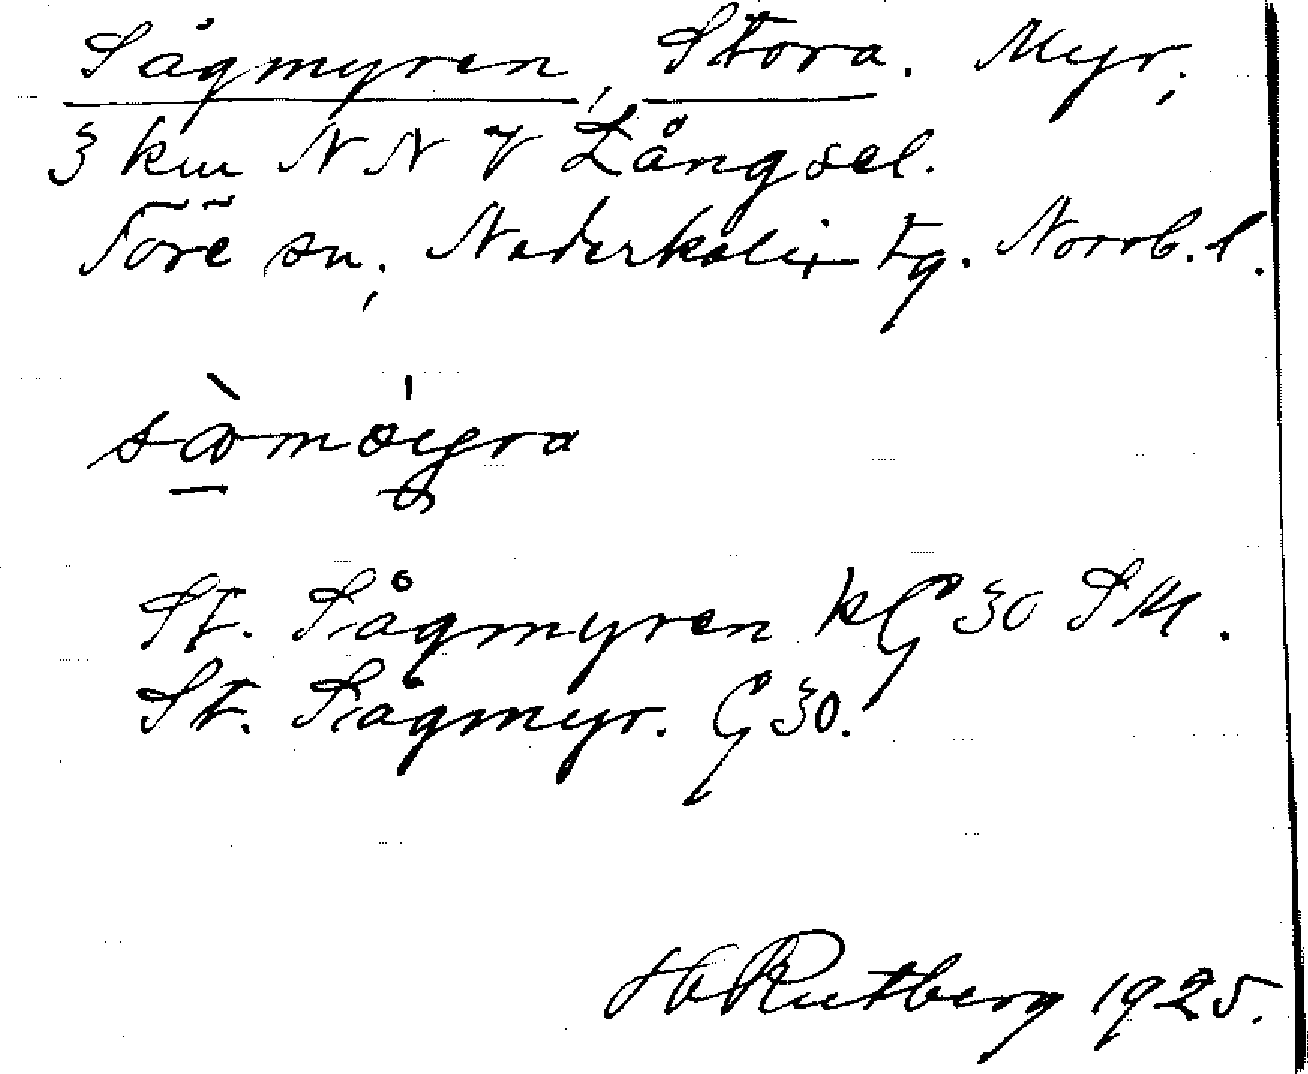 Sågmyren, Stora. Myr;
3 km NNV Långsel.
Töre sn; Nederkalix tg. Norrb. l.
St. Sågmyren kG 30 SM.
St. Sågmyr. G 30.
H Rutberg 1925.